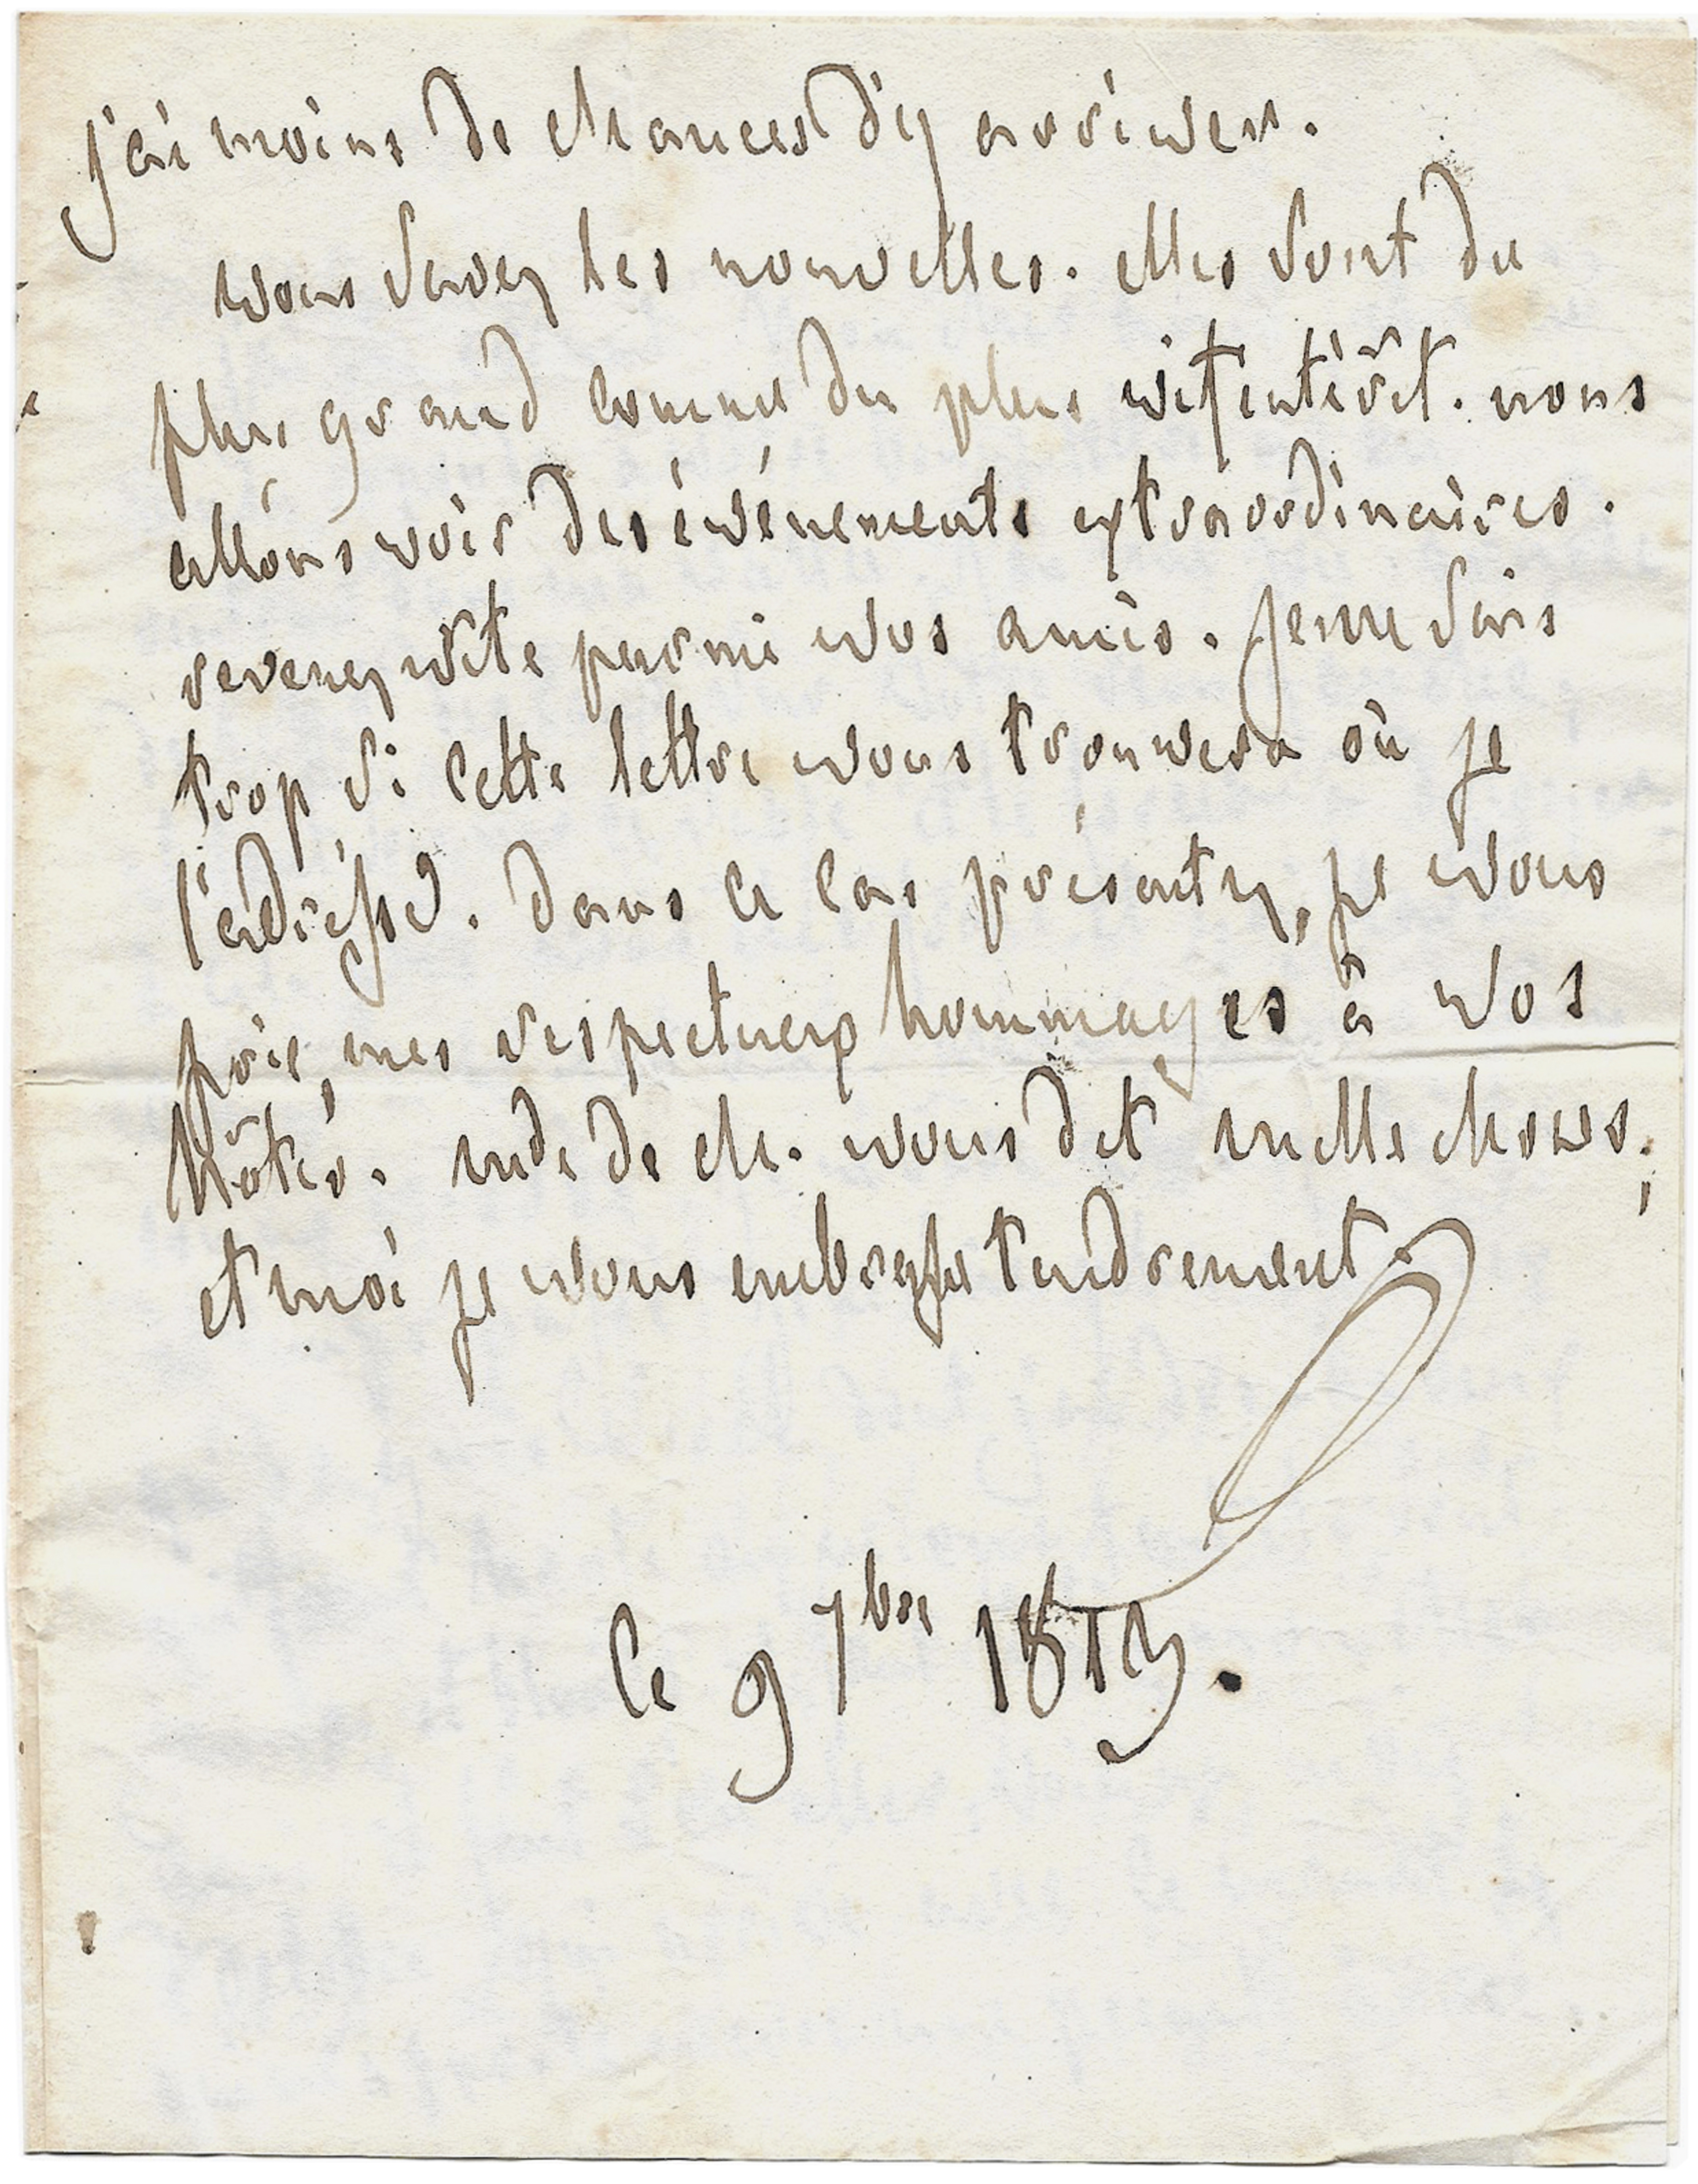 j'ai moins de chances d'y arriver.
vous savez les nouvelles. elles sont du
plus grand comme du plus vif intérêt. nous
allons voir des événements extraordinaires.
revenez vite parmi vos amis. Je ne sais
trop si cette lettre vous trouvera où je
l'adresse. dans ce cas présentez, je vous
prie, mes respectueux hommages à vos
hôtes. mde de Ch. vous dit mille choses;
et moi je vous embrasse tendrement.
Ce 9 7bre 1813.